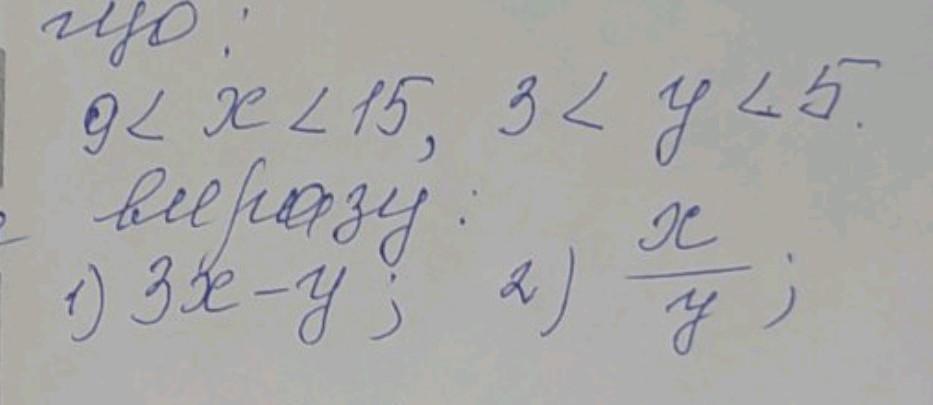 що:
9 < x < 15, 3 < y < 5.
виразу:
1) 3x - y; 2) x/y;